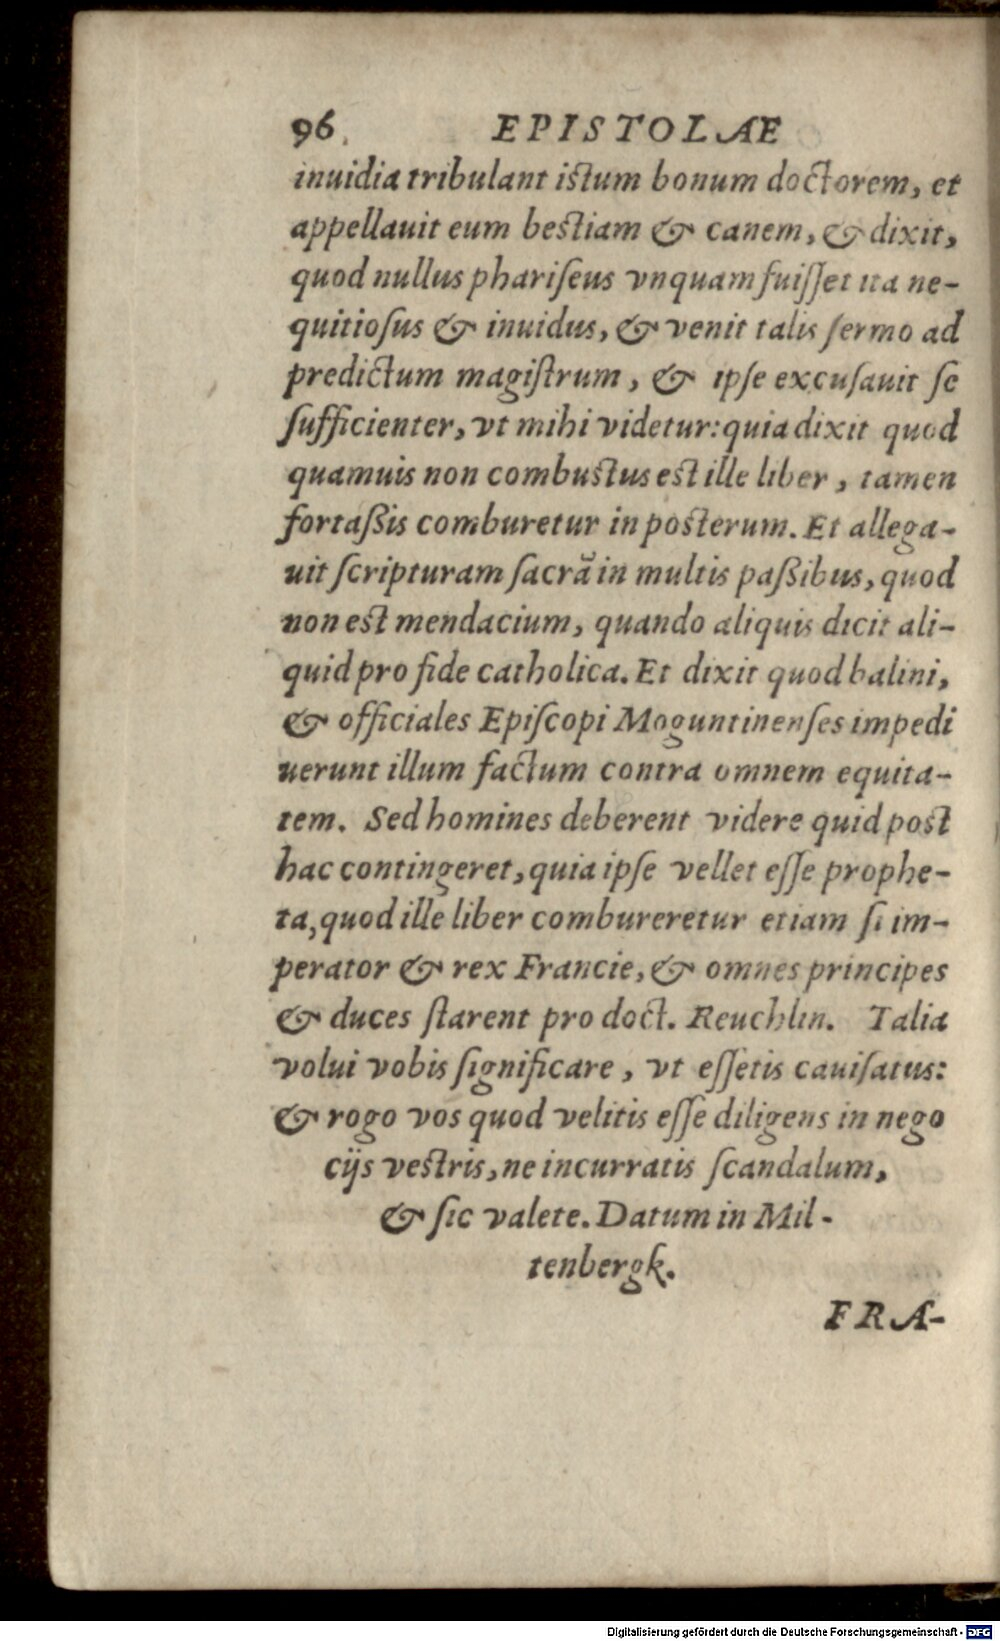 96 EPISTOLAE
inuidia tribulant istum bonum doctorem, et
appellauit eum bestiam & canem, & dixit,
quod nullus phariſeus vnquam fuiſſet ita ne-
quitioſus & inuidus, & venit talis ſermo ad
predictum magiſtrum, & ipſe excuſauit ſe
ſufficienter, vt mihi videtur: quia dixit quod
quamuis non combustus est ille liber, tamen
fortaßis comburetur in posterum. Et allega-
uit ſcripturam ſacrā in multis paßibus, quod
non est mendacium, quando aliquis dicit ali-
quid pro fide catholica. Et dixit quod balini,
& officiales Epiſcopi Moguntinenſes impedi
uerunt illum factum contra omnem equita-
tem. Sed homines deberent videre quid post
hac contingeret, quia ipſe vellet eſſe prophe-
ta, quod ille liber combureretur etiam ſi im-
perator & rex Francie, & omnes principes
& duces ſtarent pro doct. Reuchlin. Talia
volui vobis ſignificare, vt eſſetis cauiſatus:
& rogo vos quod velitis eſſe diligens in nego
cijs vestris, ne incurratis ſcandalum,
& ſic valete. Datum in Mil-
tenbergk.
FRA-
Digitalisierung gefördert durch die Deutsche Forschungsgemeinschaft - DFG